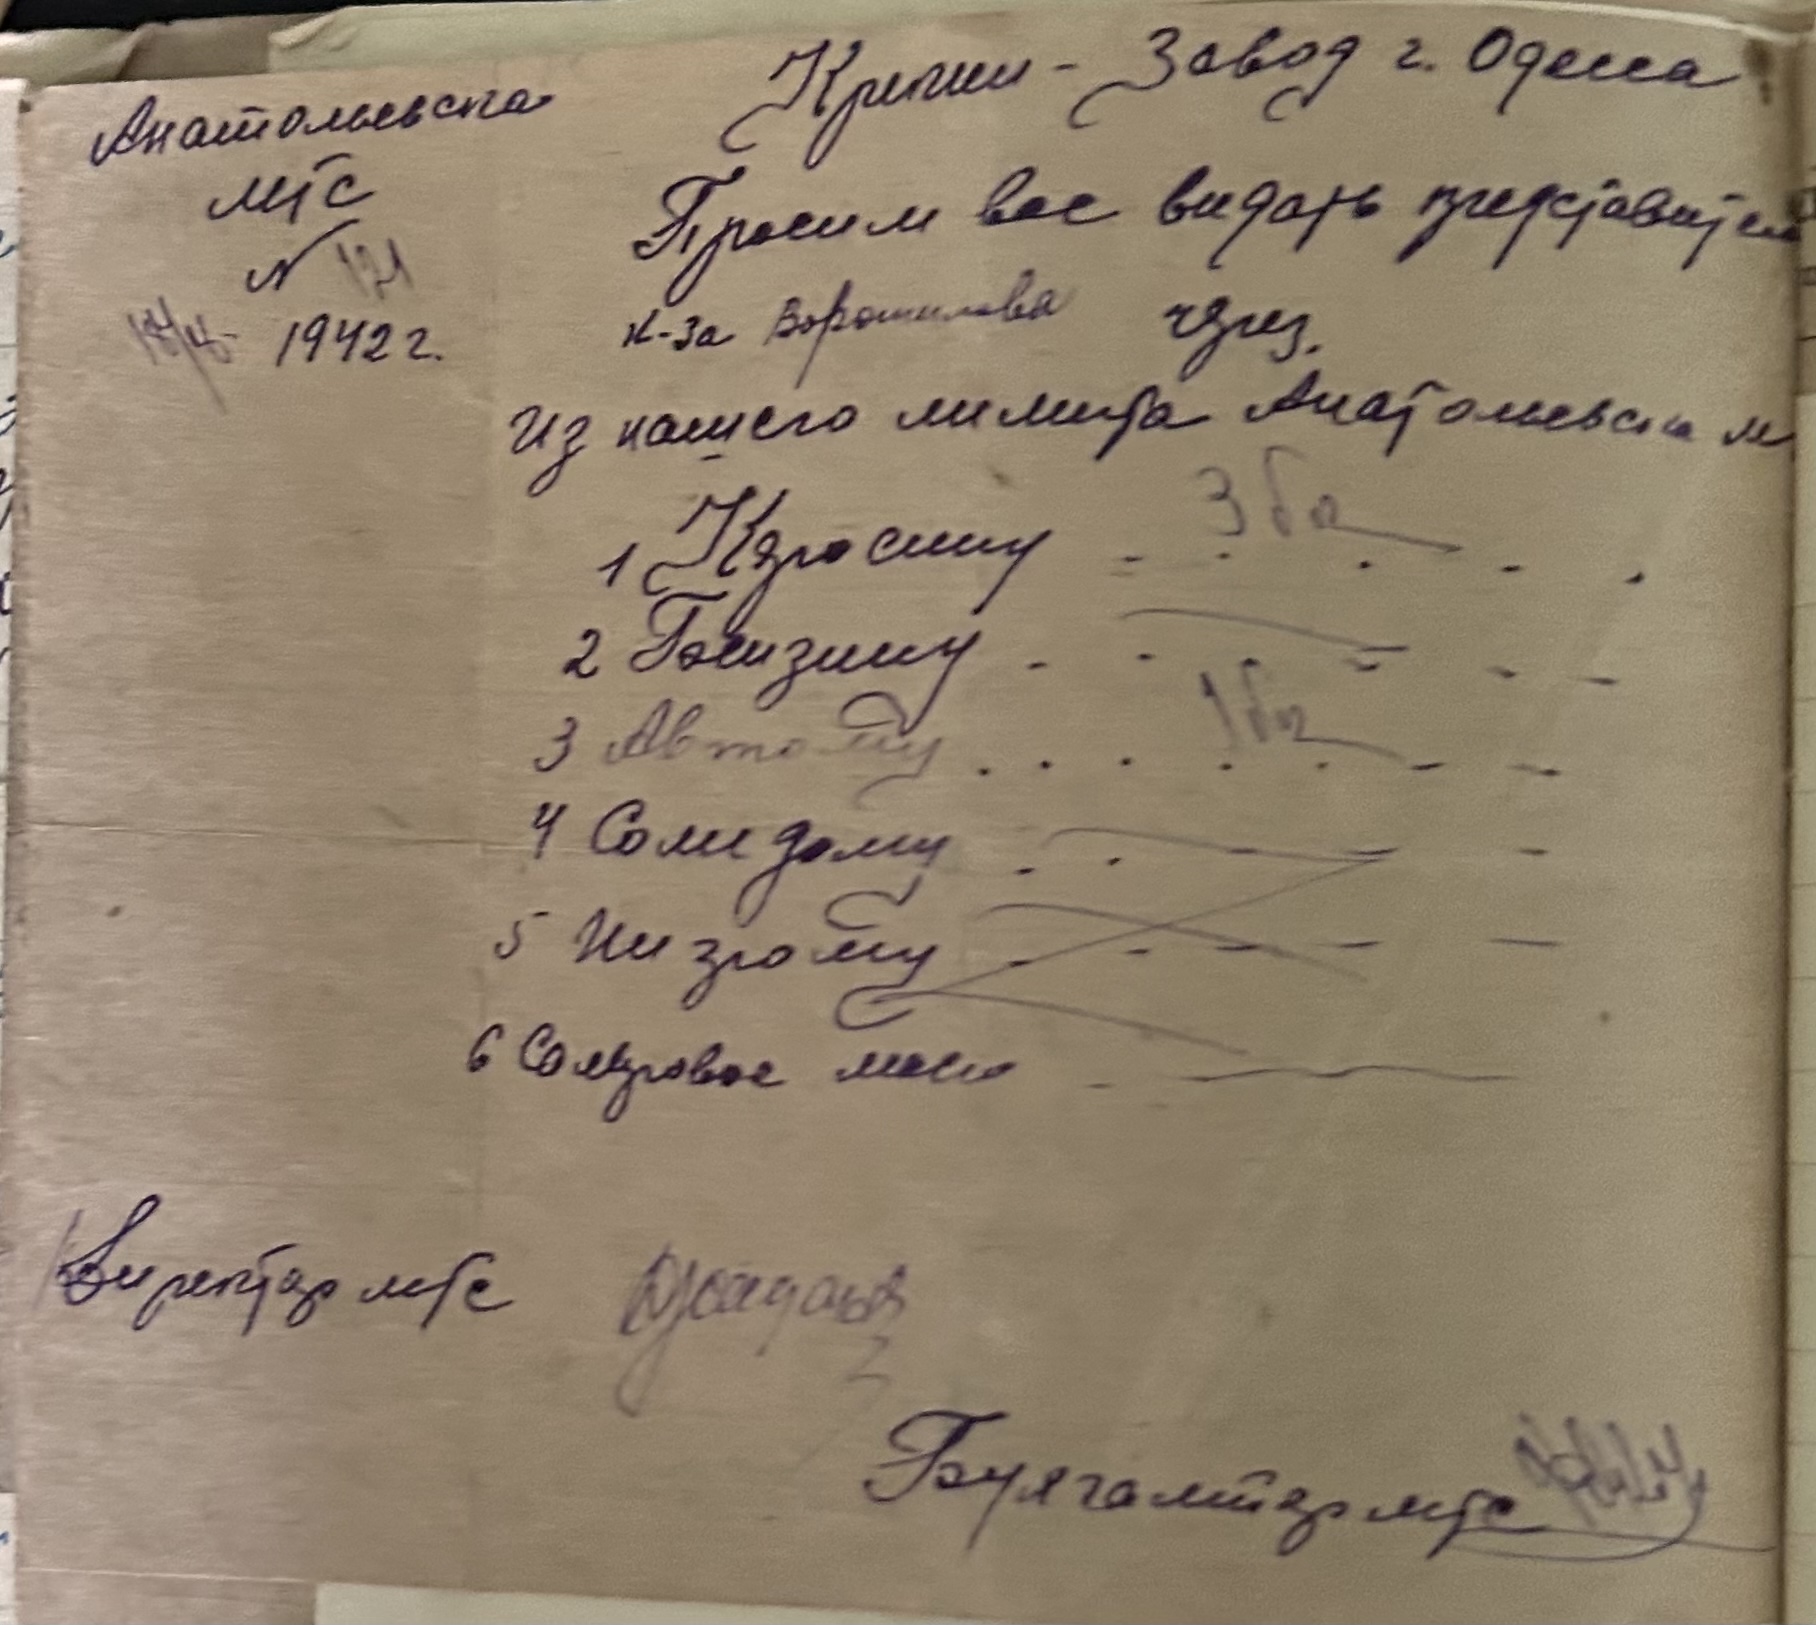 Анатольевска
МТС
N 121
1942 г.
Крекин-Завод г. Одесса
Просим вас видать представител
к-за Ворошилова через.
из нашего лимита Анатольевска м
1 Керосину 3 бо
2 Бензину
3 Автолу 1 бо
4 Солидолу
5 Нигролу
6 Соляровое масло
Директор мтс
Бухгалтер мтс